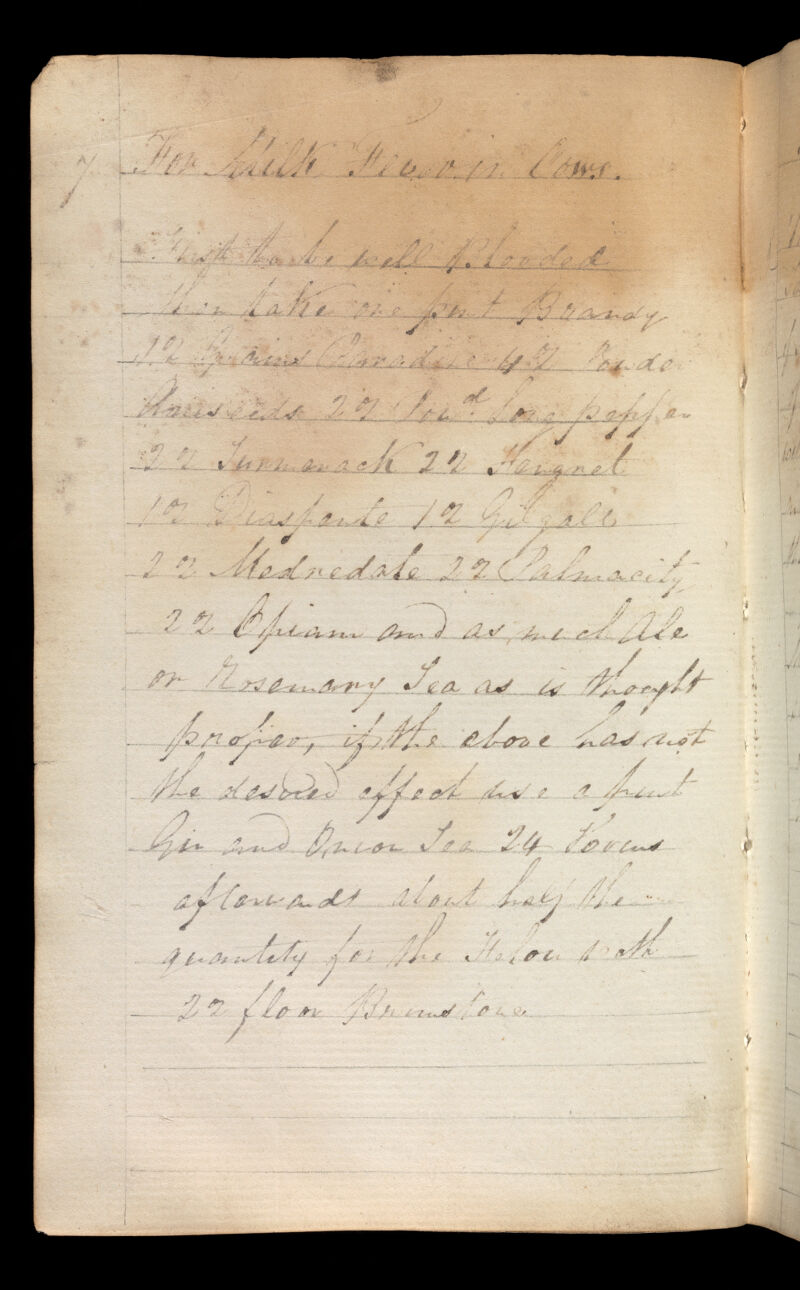 7 For Milk Fever in Cows.
First to be well Blooded
then take one pint Brandy
1 oz Grains Parradice 4 oz Powder
Anniseeds 2 oz Pow^d Long pepper
2 oz Turmarack 2 oz
1 oz Diaspente 1 oz
2 oz 2 oz
2 oz Opium and as much Ale
or Rosemary Tea as is thought
proper, if the above has not
the desired effect use a pint
Gin and Onion Tea 24 Hours
afterwards about half the
quantity for the with
2 oz floor Brimstone